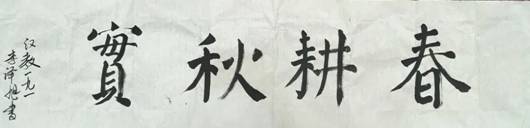 春耕秋實
汉教一九一
李泽旭書